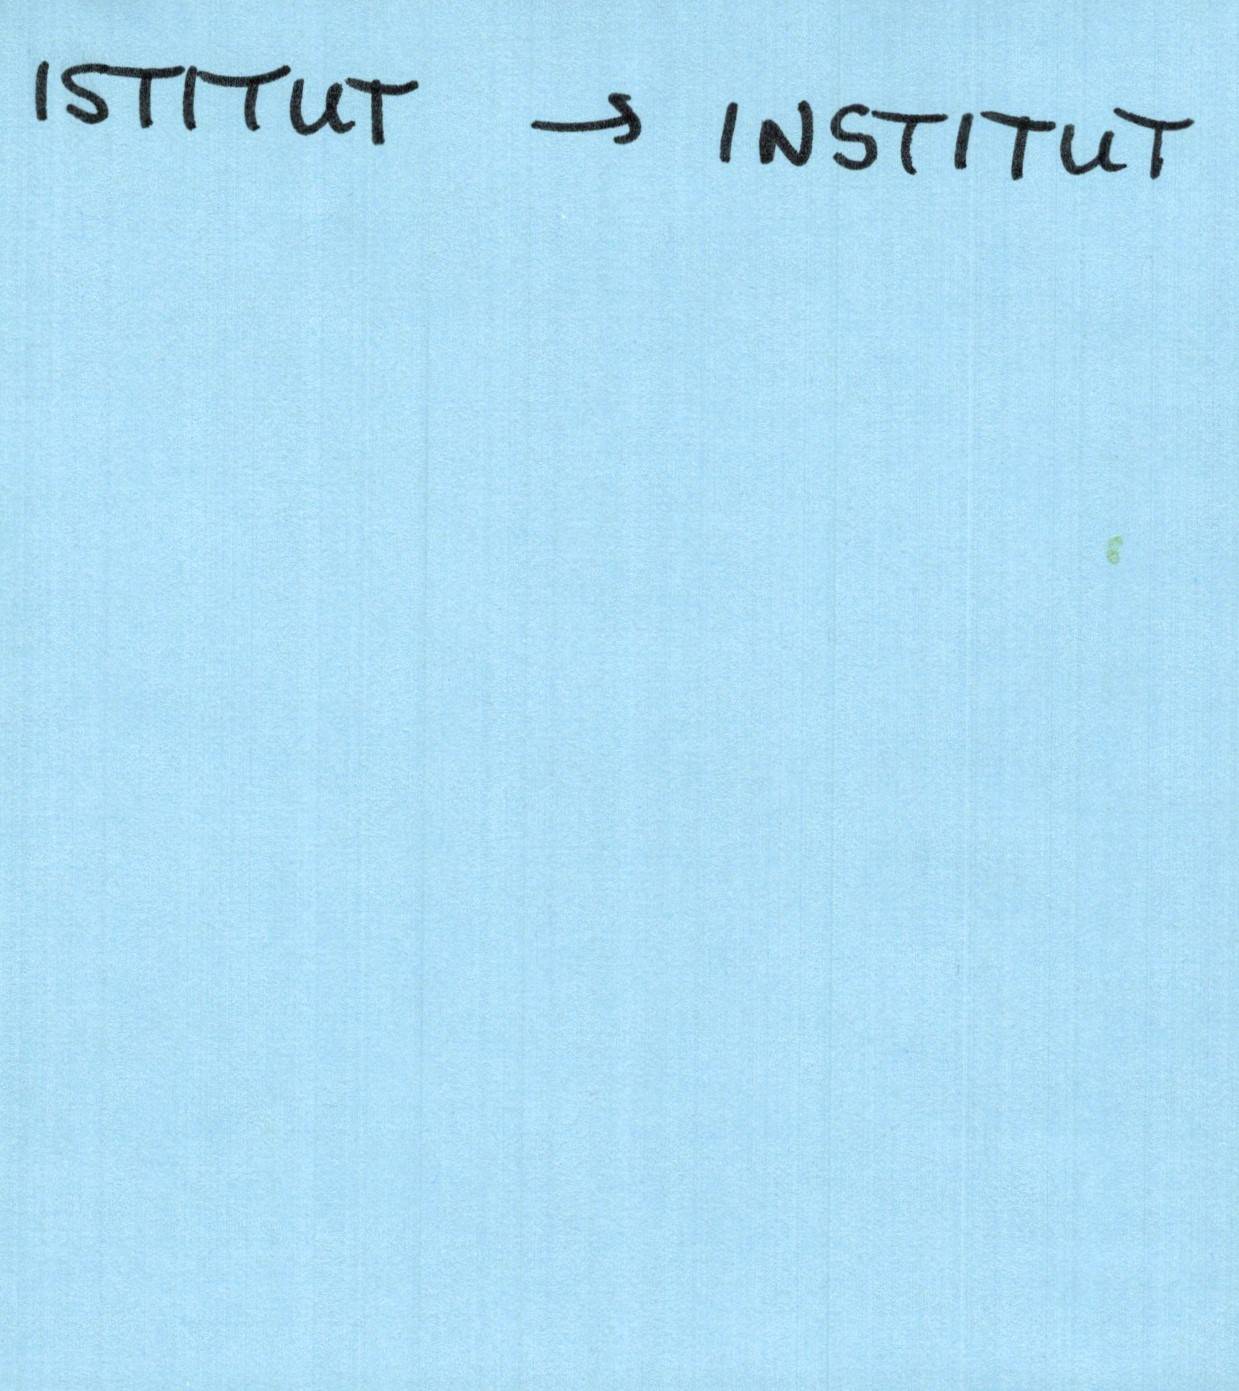 ISTITUT → INSTITUT